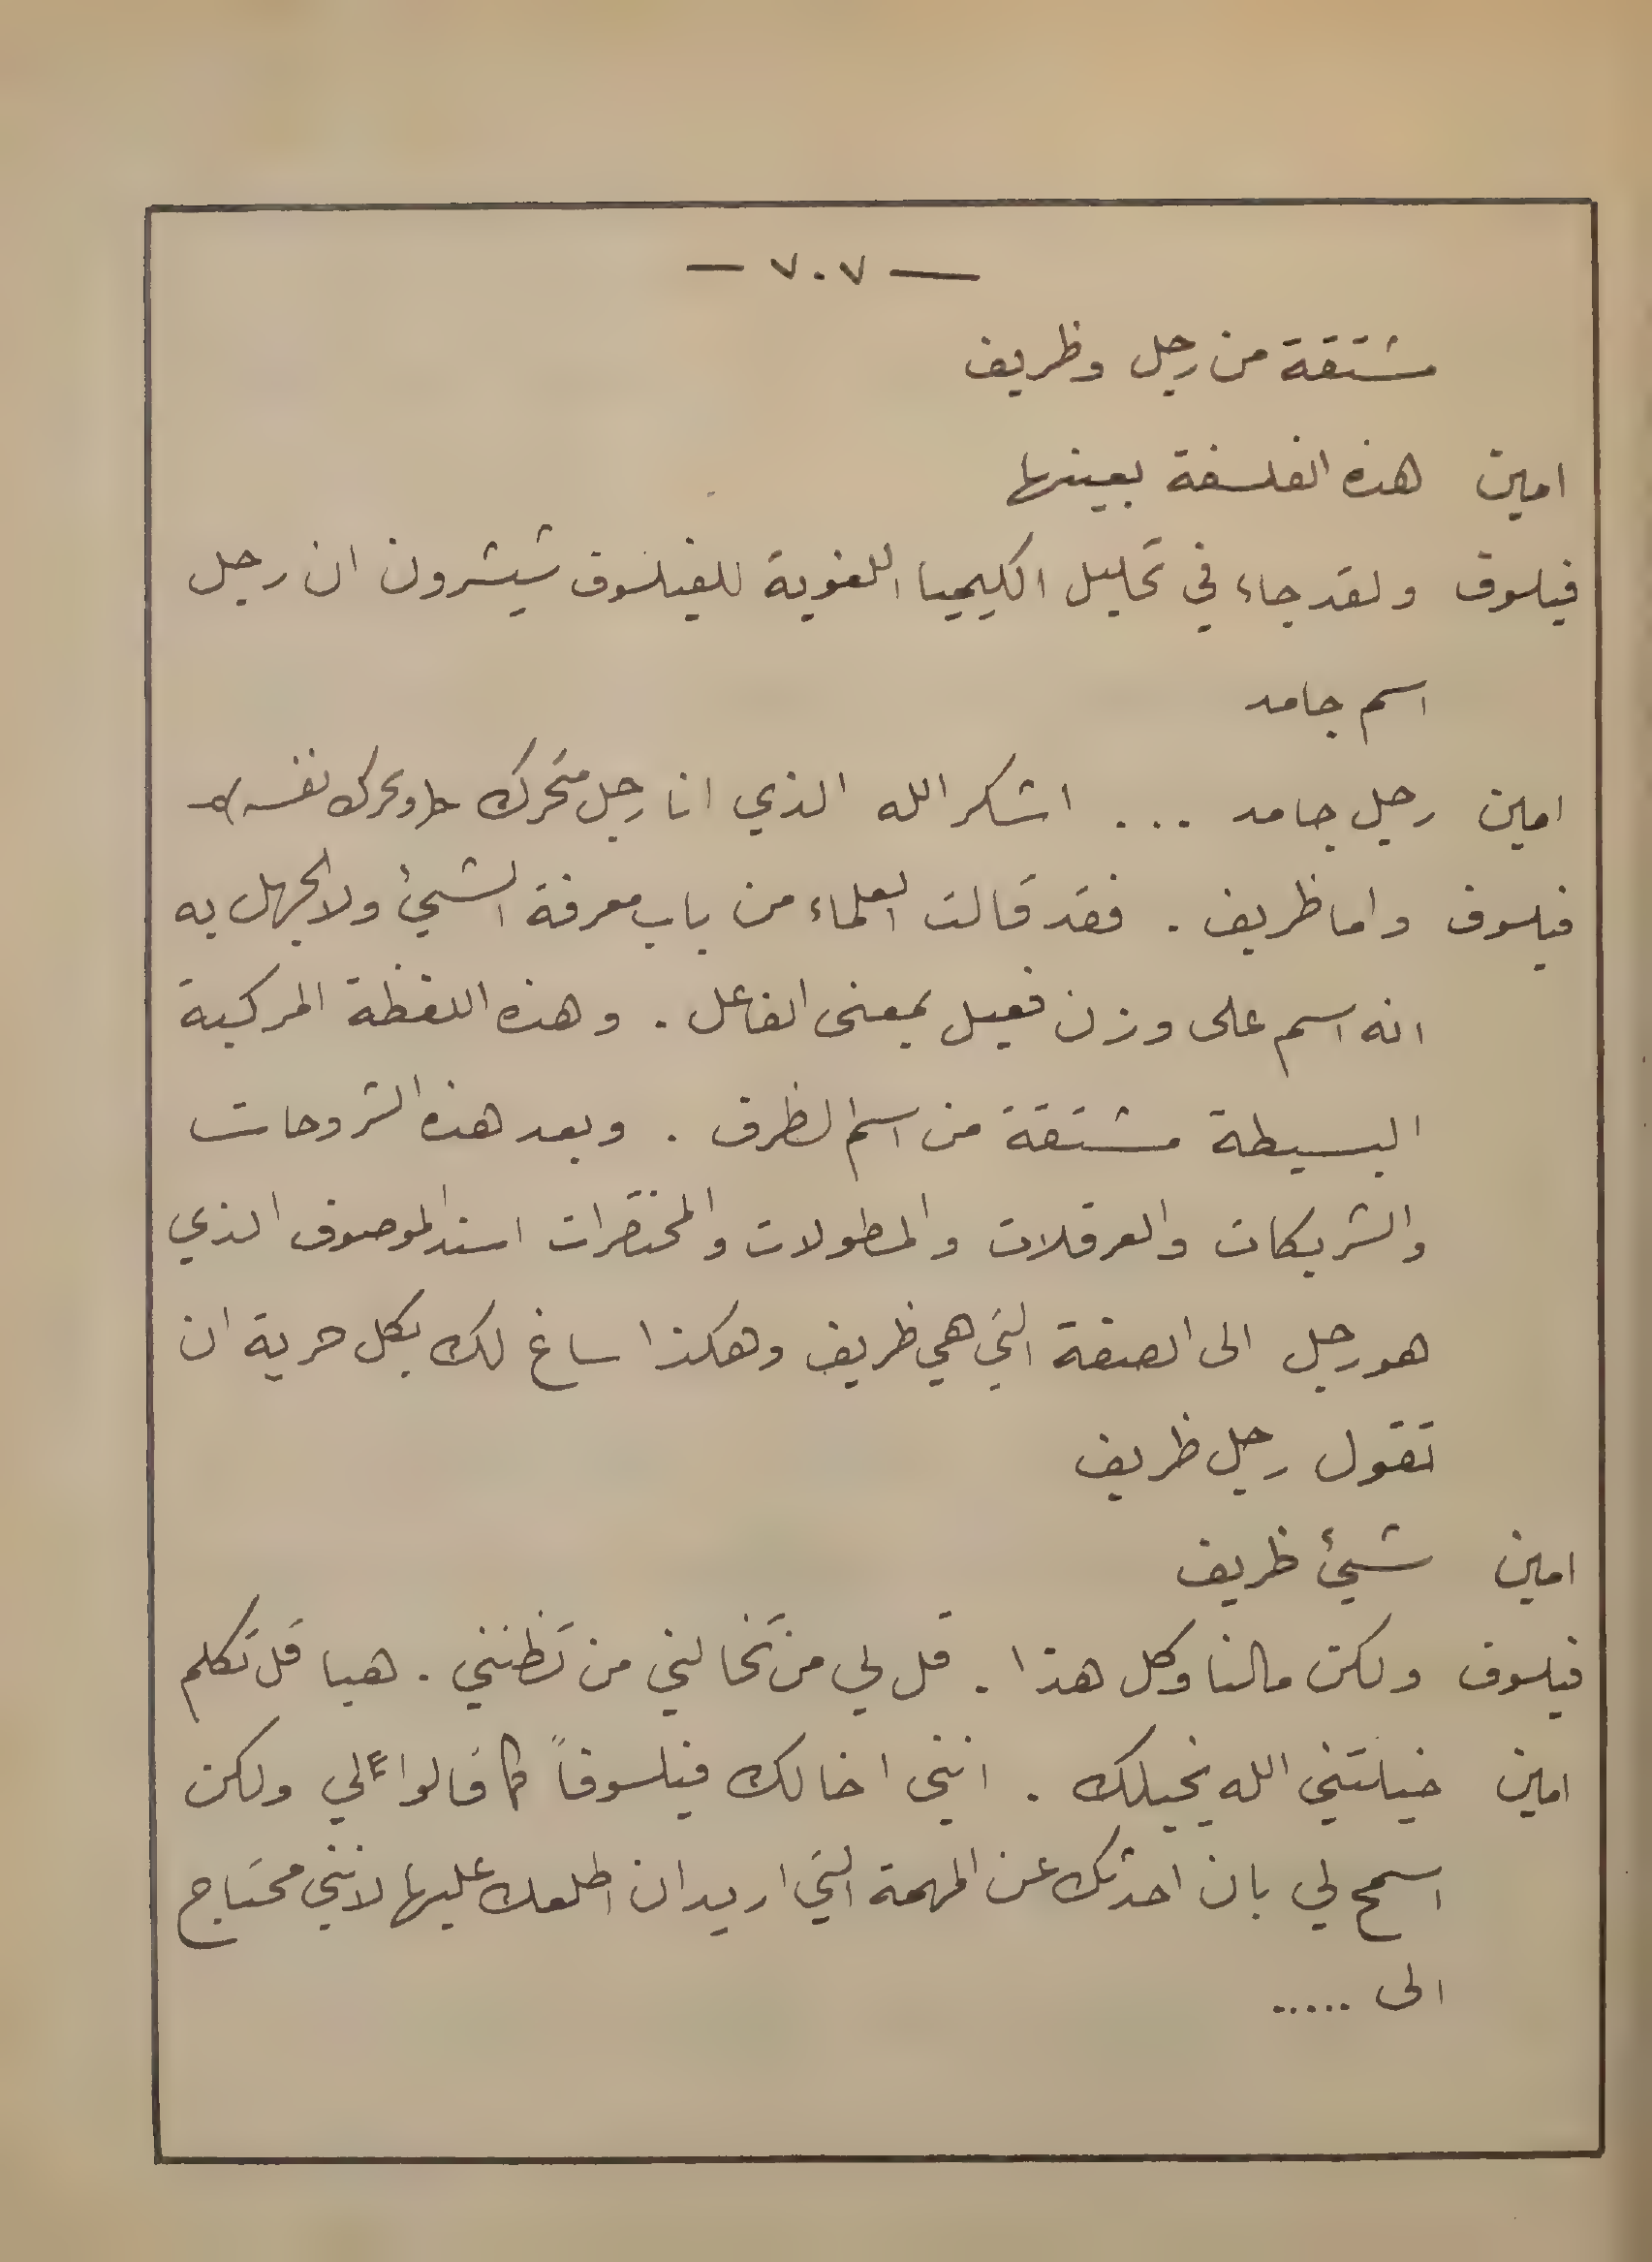 — ٧٠٧ —
مشتقة من رجل وظريف
امين هذه الفلسفة بعينها
فيلسوف ولقد جاء في تحليل الكيميا اللغوية للفيلسوف شيشرون ان رجل
اسم جامد
امين رجل جامد ... اشكر الله الذي انا رجل متحرك (ويحرك نفسه)
فيلسوف واما ظريف . فقد قالت العلماء من باب معرفة الشيئ ولا الجهل به
انه اسم على وزن فعيل بمعنى الفاعل . وهذه اللفظة المركبة
البسيطة مشتقة من اسم الظرف . وبعد هذه الشروحات
والشربكات والعرقلات والمطولات والمختصرات اسند الموصوف الذي
هو رجل الى الصفة التي هي ظريف وهكذا ساغ لك بكل حرية ان
تقول رجل ظريف
امين شيئ ظريف
فيلسوف ولكن مالنا وكل هذا . قل لي من تخالني من تظنني . هيا قل تكلم
امين خيلتني الله يخيلك . انني اخالك فيلسوفاً كما قالوا لي ولكن
اسمح لي بان احدثك عن المهمة التي اريد ان اطلعك عليها لانني محتاج
الى .....